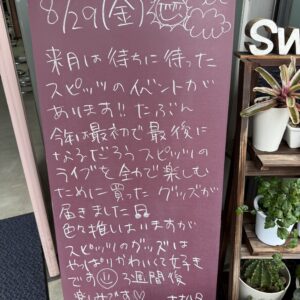 8/29(金)
来月は待ちに待った
スピッツのイベントが
あります!! たぶん
今年は最初で最後に
なるだろうスピッツの
ライブを全力で楽しむ
ために買ったグッズが
届きました
色々推しはいますが
スピッツのグッズは
やっぱりかわいくて好き
です 3週間後
楽しみです♡
SW